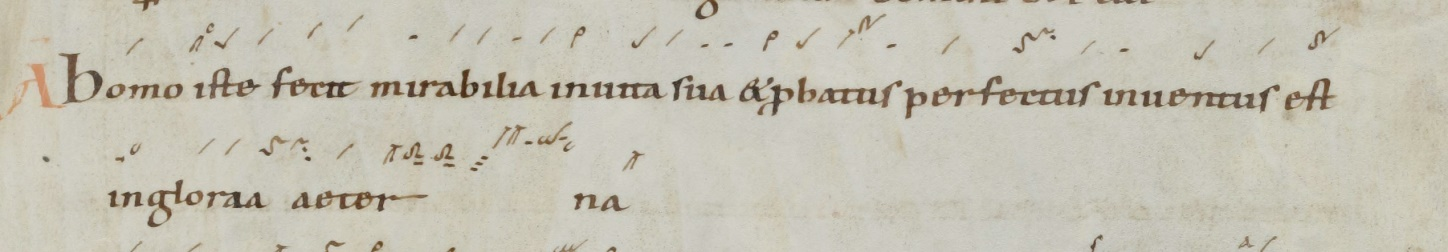 A homo iste fecit mirabilia inuita sua &ꝓbatus perfectus inuentus est
ingloraa aeter na